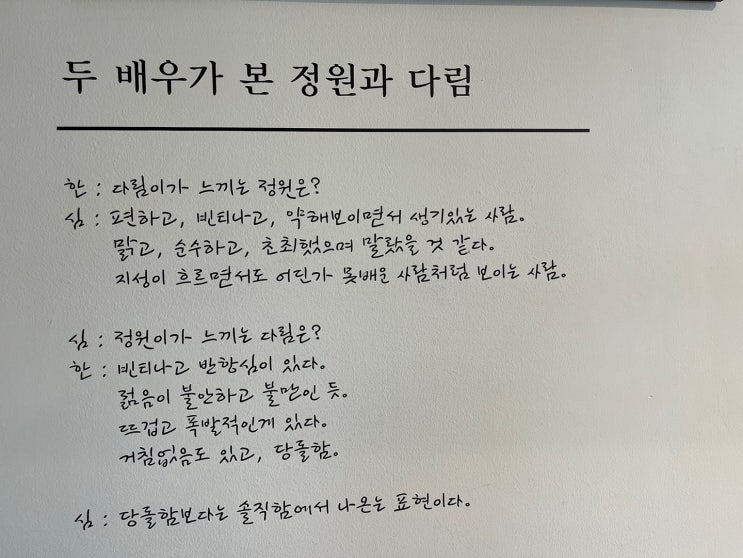 두 배우가 본 정원과 다림
한 : 다림이가 느끼는 정원은?
심 : 편하고, 빈티나고, 약해보이면서 생기있는 사람.
맑고, 순수하고, 초최했으며 말랐을 것 같다.
지성이 흐르면서도 어딘가 못배운 사람처럼 보이는 사람.
심 : 정원이가 느끼는 다림은?
한 : 빈티나고 반항심이 있다.
젊음이 불안하고 불만인 듯.
뜨겁고 폭발적인게 있다.
거침없음도 있고, 당돌함.
심 : 당돌함보다는 솔직함에서 나온는 표현이다.